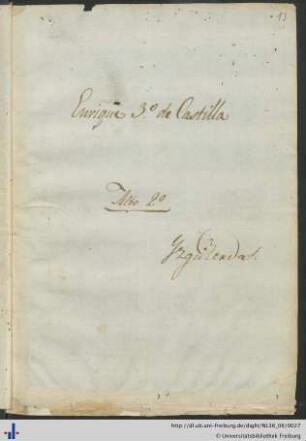 13
Enrique 3.º de Castilla
Año 2º
Yzquierdas.
http://dl.ub.uni-freiburg.de/diglit/NL38_08/0027
© Universitätsbibliothek Freiburg